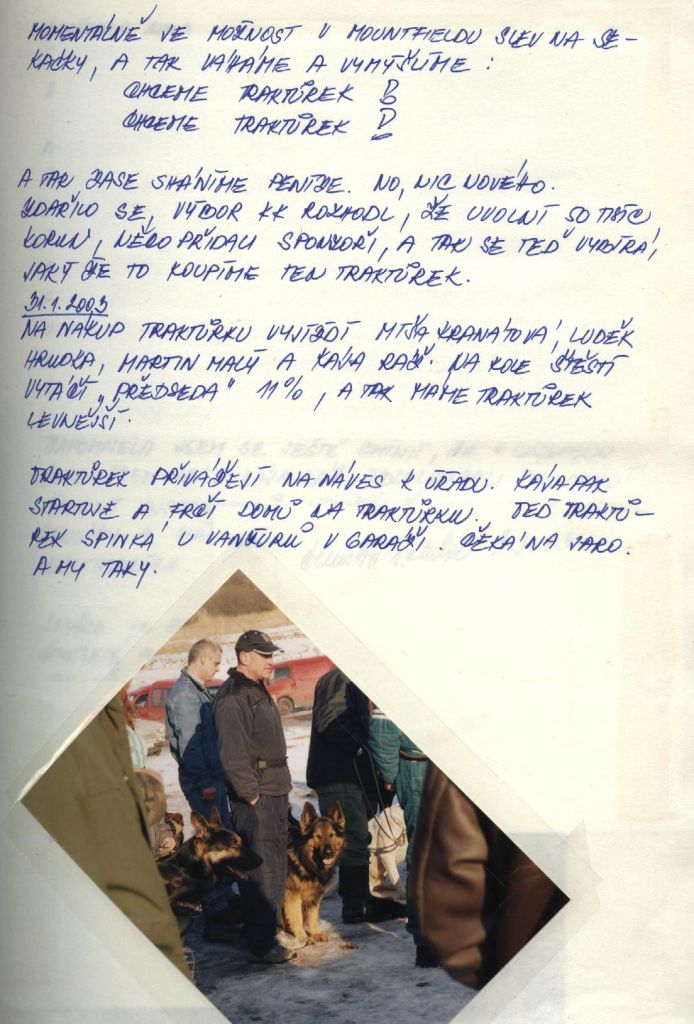 MOMENTÁLNĚ JE MOŽNOST V MOUNTFIELDU SLEV NA SE-
KAČKY, A TAK VÁHÁME A VYMÝŠLÍME :
CHCEME TRAKTŮREK B
CHCEME TRAKTŮREK D
A TAK ZASE SHÁNÍME PENÍZE. NO, NIC NOVÉHO.
ZDAŘILO SE, VÝBOR KK ROZHODL, ŽE UVOLNÍ 50 TISÍC
KORUN, NĚCO PŘIDALI SPONZOŘI, A TAK SE TEĎ VYBÍRÁ,
JAKÝ ŽE TO KOUPÍME TEN TRAKTŮREK.
31.1.2003
NA NÁKUP TRAKTŮRKU VYJÍŽDÍ MÍŠA KRANÁTOVÁ, LUDĚK
HRUDKA, MARTIN MALÝ A KÁJA RAIS. NA KOLE ŠTĚSTÍ
VYTÁČÍ „PŘEDSEDA" 11%, A TAK MÁME TRAKTŮREK
LEVNĚJŠÍ.
TRAKTŮREK PŘIVÁŽEJÍ NA NÁVES K ÚŘADU. KÁJA PAK
STARTUJE A FRČÍ DOMŮ NA TRAKTŮRKU. TEĎ TRAKTŮ-
REK SPINKÁ U VANČURŮ V GARÁŽI. ČEKÁ NA JARO.
A MY TAKY.